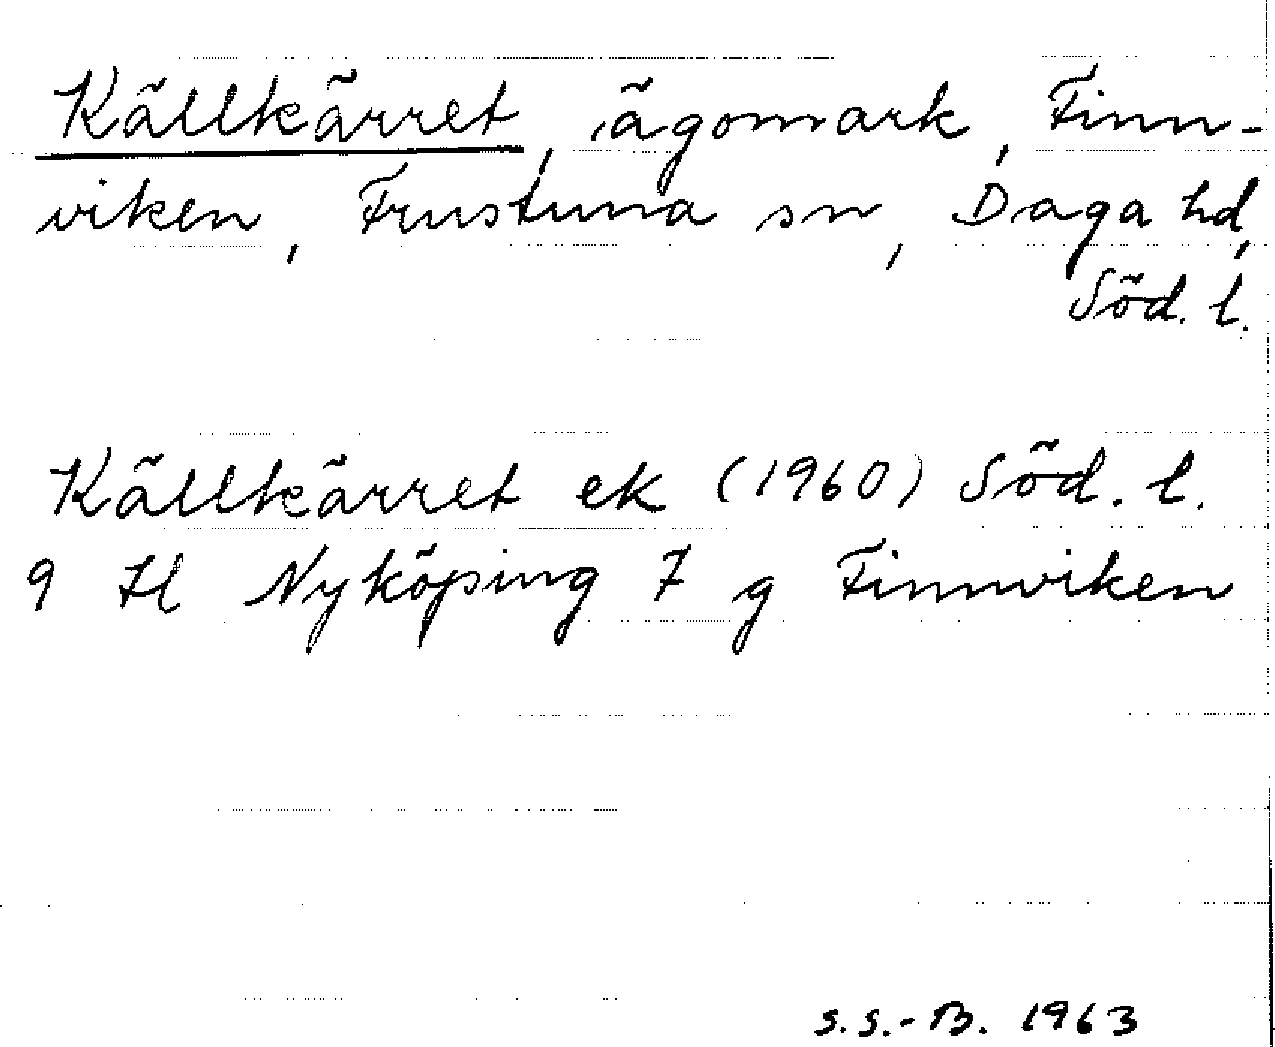 Källkärret, ägomark, Finn-
viken, Frustuna sn, Daga hd,
Söd. l.
Källkärret ek (1960) Söd. l.
9 H Nyköping 7 g Finnviken
S.S.-B. 1963